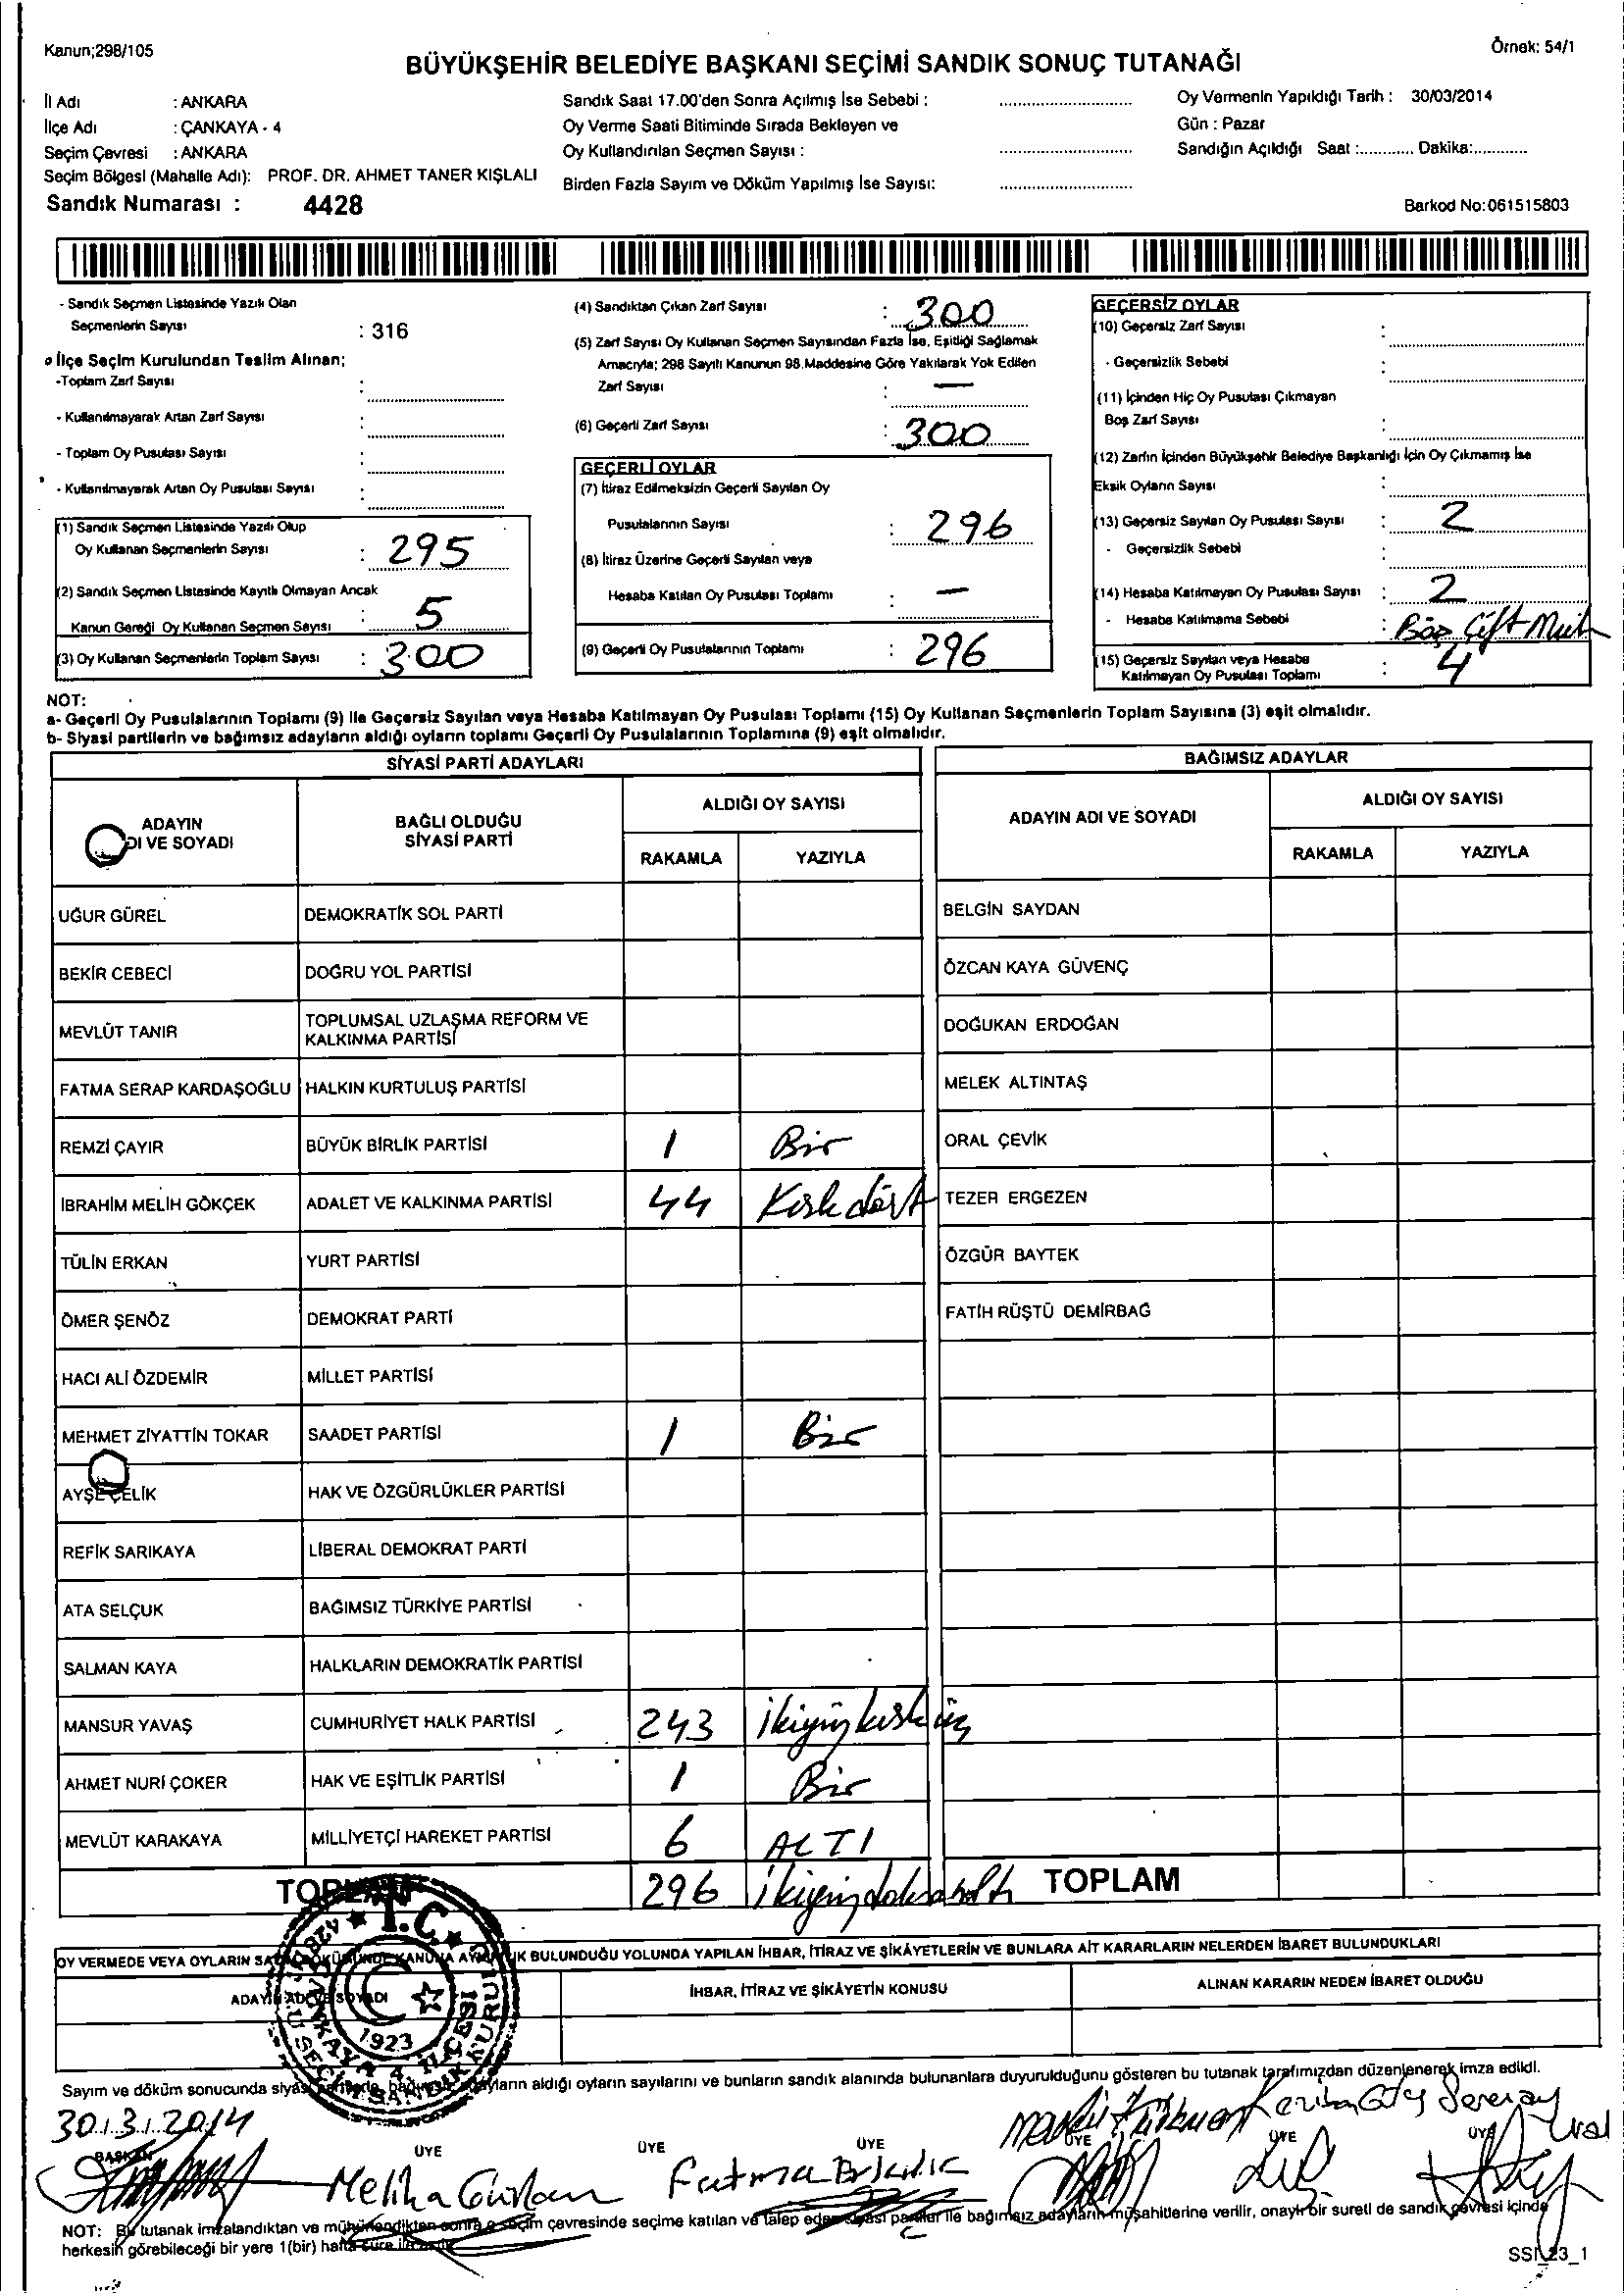 Kanun;298/105
Örnek: 54/1
BÜYÜKŞEHİR BELEDİYE BAŞKANI SEÇİMİ SANDIK SONUÇ TUTANAĞI
İl Adı : ANKARA
İlçe Adı : ÇANKAYA - 4
Seçim Çevresi : ANKARA
Seçim Bölgesi (Mahalle Adı): PROF. DR. AHMET TANER KIŞLALI
Sandık Numarası : 4428
Sandık Saat 17.00'den Sonra Açılmış İse Sebebi :
Oy Verme Saati Bitiminde Sırada Bekleyen ve
Oy Kullandırılan Seçmen Sayısı :
Birden Fazla Sayım ve Döküm Yapılmış İse Sayısı:
Oy Vermenin Yapıldığı Tarih : 30/03/2014
Gün : Pazar
Sandığın Açıldığı Saat :............ Dakika:............
Barkod No:061515803
- Sandık Seçmen Listesinde Yazılı Olan
Seçmenlerin Sayısı : 316
İlçe Seçim Kurulundan Teslim Alınan;
-Toplam Zarf Sayısı :
- Kullanılmayarak Artan Zarf Sayısı :
- Toplam Oy Pusulası Sayısı :
- Kullanılmayarak Artan Oy Pusulası Sayısı :
(1) Sandık Seçmen Listesinde Yazılı Olup
Oy Kullanan Seçmenlerin Sayısı : 295
(2) Sandık Seçmen Listesinde Kayıtlı Olmayan Ancak
Kanun Gereği Oy Kullanan Seçmen Sayısı : 5
(3) Oy Kullanan Seçmenlerin Toplam Sayısı : 300
(4) Sandıktan Çıkan Zarf Sayısı : 300
(5) Zarf Sayısı Oy Kullanan Seçmen Sayısından Fazla İse, Eşitliği Sağlamak
Amacıyla; 298 Sayılı Kanunun 98.Maddesine Göre Yakılarak Yok Edilen
Zarf Sayısı : —
(6) Geçerli Zarf Sayısı : 300
GEÇERLİ OYLAR
(7) İtiraz Edilmeksizin Geçerli Sayılan Oy
Pusulalarının Sayısı : 296
(8) İtiraz Üzerine Geçerli Sayılan veya
Hesaba Katılan Oy Pusulası Toplamı : —
(9) Geçerli Oy Pusulalarının Toplamı : 296
GEÇERSİZ OYLAR
(10) Geçersiz Zarf Sayısı :
- Geçersizlik Sebebi :
(11) İçinden Hiç Oy Pusulası Çıkmayan
Boş Zarf Sayısı :
(12) Zarfın İçinden Büyükşehir Belediye Başkanlığı İçin Oy Çıkmamış İse
Eksik Oyların Sayısı :
(13) Geçersiz Sayılan Oy Pusulası Sayısı : 2
- Geçersizlik Sebebi :
(14) Hesaba Katılmayan Oy Pusulası Sayısı : 2
- Hesaba Katılmama Sebebi : Boş Çift
(15) Geçersiz Sayılan veya Hesaba
Katılmayan Oy Pusulası Toplamı : 4
NOT:
a- Geçerli Oy Pusulalarının Toplamı (9) ile Geçersiz Sayılan veya Hesaba Katılmayan Oy Pusulası Toplamı (15) Oy Kullanan Seçmenlerin Toplam Sayısına (3) eşit olmalıdır.
b- Siyasi partilerin ve bağımsız adayların aldığı oyların toplamı Geçerli Oy Pusulalarının Toplamına (9) eşit olmalıdır.
SİYASİ PARTİ ADAYLARI
BAĞIMSIZ ADAYLAR
ADAYIN
DI VE SOYADI
BAĞLI OLDUĞU
SİYASİ PARTİ
ALDIĞI OY SAYISI
RAKAMLA YAZIYLA
ADAYIN ADI VE SOYADI
ALDIĞI OY SAYISI
RAKAMLA YAZIYLA
UĞUR GÜREL DEMOKRATİK SOL PARTİ BELGİN SAYDAN
BEKİR CEBECİ DOĞRU YOL PARTİSİ ÖZCAN KAYA GÜVENÇ
MEVLÜT TANIR TOPLUMSAL UZLAŞMA REFORM VE
KALKINMA PARTİSİ DOĞUKAN ERDOĞAN
FATMA SERAP KARDAŞOĞLU HALKIN KURTULUŞ PARTİSİ MELEK ALTINTAŞ
REMZİ ÇAYIR BÜYÜK BİRLİK PARTİSİ 1 Bir ORAL ÇEVİK
İBRAHİM MELİH GÖKÇEK ADALET VE KALKINMA PARTİSİ 44 Kırkdört TEZER ERGEZEN
TÜLİN ERKAN YURT PARTİSİ ÖZGÜR BAYTEK
ÖMER ŞENÖZ DEMOKRAT PARTİ FATİH RÜŞTÜ DEMİRBAĞ
HACI ALİ ÖZDEMİR MİLLET PARTİSİ
MEHMET ZİYATTİN TOKAR SAADET PARTİSİ 1 Bir
AYŞE ÇELİK HAK VE ÖZGÜRLÜKLER PARTİSİ
REFİK SARIKAYA LİBERAL DEMOKRAT PARTİ
ATA SELÇUK BAĞIMSIZ TÜRKİYE PARTİSİ
SALMAN KAYA HALKLARIN DEMOKRATİK PARTİSİ
MANSUR YAVAŞ CUMHURİYET HALK PARTİSİ 243 ikiyüzkırküç
AHMET NURİ ÇOKER HAK VE EŞİTLİK PARTİSİ 1 Bir
MEVLÜT KARAKAYA MİLLİYETÇİ HAREKET PARTİSİ 6 ALTI
TOPLAM 296 ikiyüzdoksanaltı TOPLAM
OY VERMEDE VEYA OYLARIN SAYIM DÖKÜMÜNDE KANUNA AYKIRILIK BULUNDUĞU YOLUNDA YAPILAN İHBAR, İTİRAZ VE ŞİKÂYETLERİN VE BUNLARA AİT KARARLARIN NELERDEN İBARET BULUNDUKLARI
ADAYIN ADI VE SOYADI İHBAR, İTİRAZ VE ŞİKÂYETİN KONUSU ALINAN KARARIN NEDEN İBARET OLDUĞU
T.C.
1923
Sayım ve döküm sonucunda siyasi partilerin, bağımsız adayların aldığı oyların sayılarını ve bunların sandık alanında bulunanlara duyurulduğunu gösteren bu tutanak tarafımızdan düzenlenerek imza edildi.
30.3.2014
BAŞKAN ÜYE ÜYE ÜYE ÜYE ÜYE ÜYE
Fatma
NOT: Bu tutanak imzalandıktan ve mühürlendikten sonra o seçim çevresinde seçime katılan ve talep eden siyasi partiler ile bağımsız adayların müşahitlerine verilir, onaylı bir sureti de sandık çevresi içinde
herkesin görebileceği bir yere 1(bir) hafta süre ile asılır.
SSI_23_1